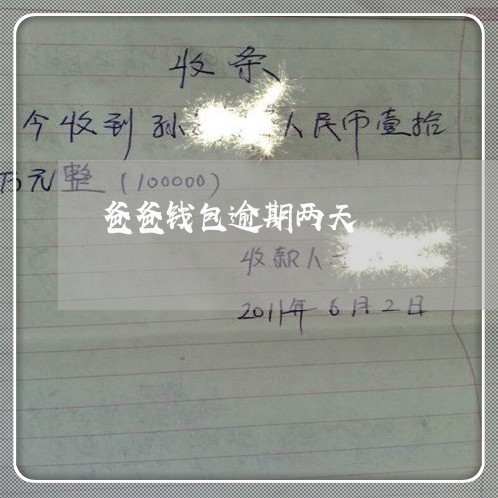 收条
今收到孙 人民币壹拾
万元整(100000)
爸爸钱包逾期两天
收款人
2011年6月2日